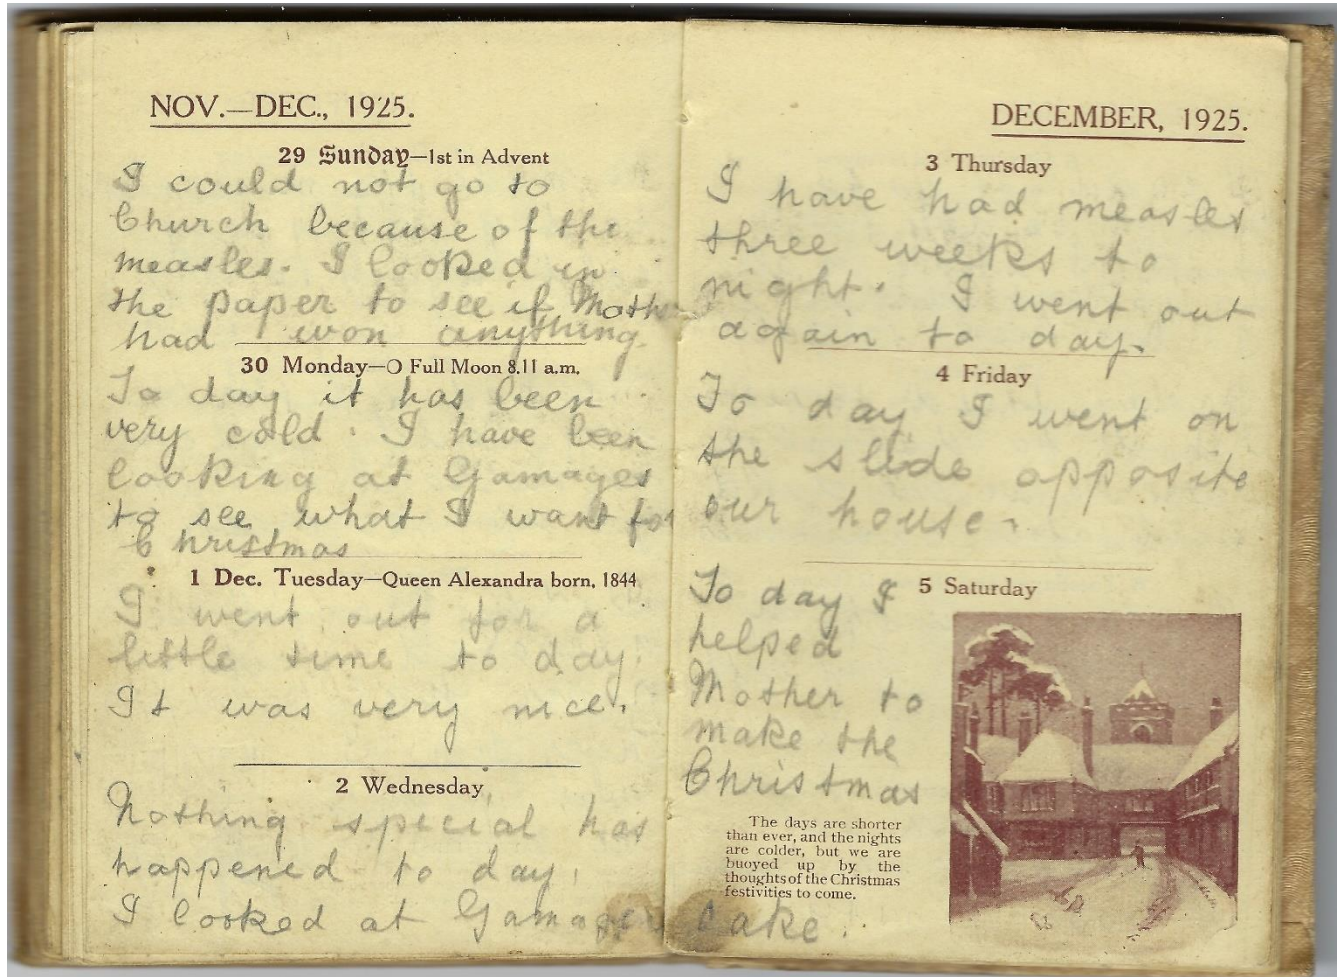 NOV.—DEC., 1925.
29 Sunday—1st in Advent
I could not go to
Church because of the
measles. I looked in
the paper to see if Moth
had won anything.
30 Monday—O Full Moon 8.11 a.m.
To day it has been
very cold. I have been
looking at Gamages
to see what I want for
Christmas
1 Dec. Tuesday—Queen Alexandra born, 1844
I went out for a
little time to day.
It was very nice.
2 Wednesday
Nothing special has
happened to day.
I looked at Gamages
DECEMBER, 1925.
3 Thursday
I have had measles
three weeks to
night. I went out
again to day.
4 Friday
To day I went on
the slide opposite
our house.
5 Saturday
To day I
helped
Mother to
make the
Christmas
The days are shorter
than ever, and the nights
are colder, but we are
buoyed up by the
thoughts of the Christmas
festivities to come.
Cake.